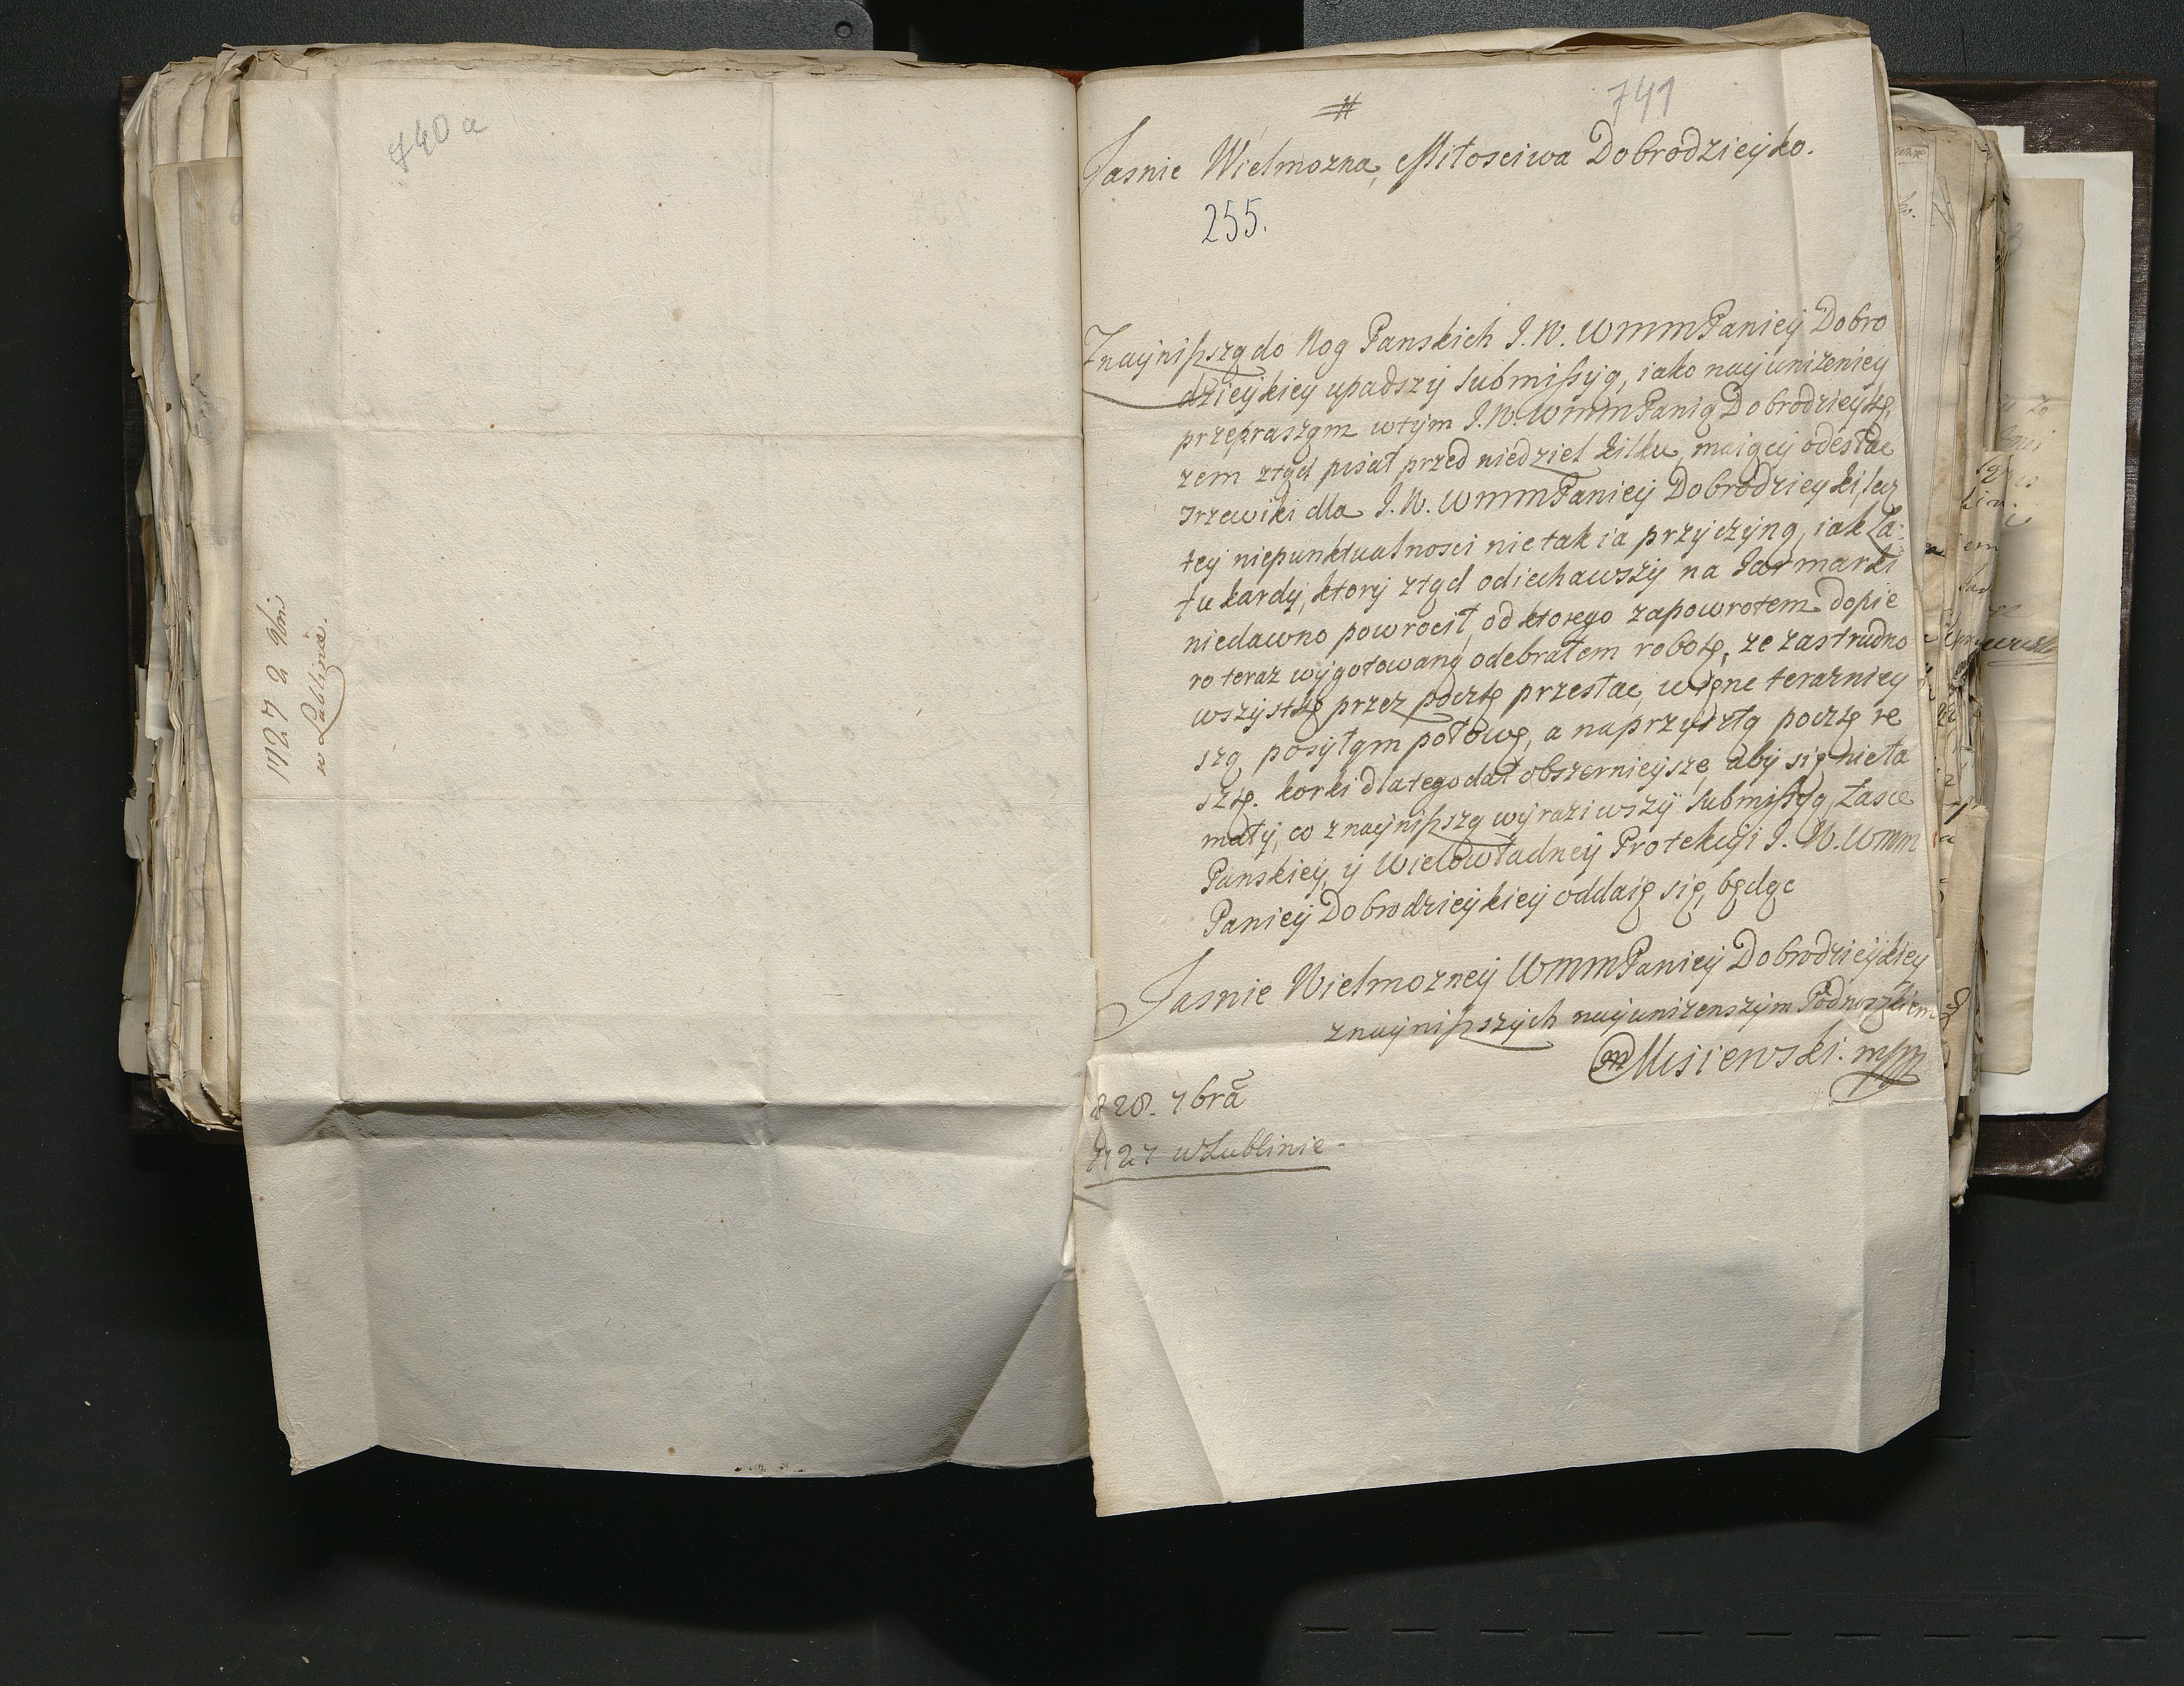 740a
1727 2 9bri
w Lublinie.
#
741
Jasnie Wielmozna, Miłosciwa Dobrodzieyko.
255.
Z naÿnißszą do Nog Panskich J. W. WMMPanieÿ Dobro
dzieÿkieÿ upadszÿ submißÿą, iako naÿuniżenieÿ
przeprasząm wtÿm J. W. WMMPanią Dobrodzieÿkę,
zem ztąd pisał przed niedziel kilku, maiącÿ odesłac
Trzewiki dla J. W. WMMPanieÿ Dobrodzieÿki, lecz
teÿ niepunktualnosci nie tak ia przÿczÿną, iak Ła:
tukardÿ, ktorÿ ztąd odiechawszÿ na Jarmarki
niedawno powrocił, od ktorego zapowrotem dopie
ro teraz wÿgotowaną odebrałem robotę, ze zastrudno
wszÿstkę przez pocztę przesłac, więnc teraznieÿ
szą posÿłąm połowę, a naprzÿszłą pocztę re
sztę. korki dlatego dał obszernieÿsze, abÿ się nieła
małÿ, co z naÿnißszą wÿraziwszÿ submißÿą, Łasce
Panskieÿ, ÿ Wielowładneÿ Protekcÿi J. W. WMM
Panieÿ Dobrodzieÿkieÿ oddaię się, będąc
Jasnie Wielmozneÿ WMMPanieÿ Dobrodzieÿkieÿ
znaÿnißszÿch naÿunizenszÿm Podnoszkiem
M Misiewski. mpp
d 28. 7brã
1727 w Lublinie -